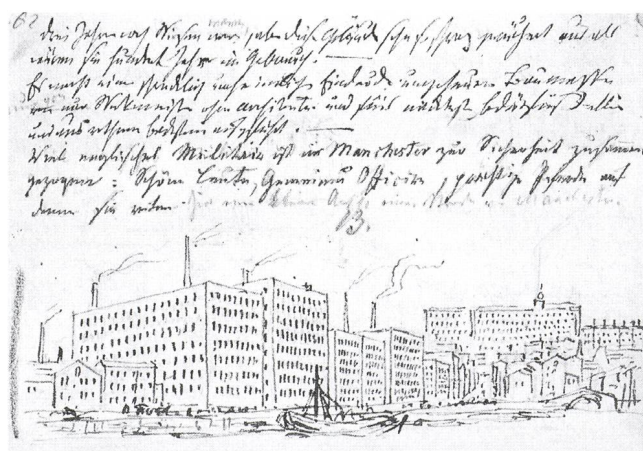 62
drei Jahren noch Wiesen waren, aber diese Gebäude sehen so schwarz geräuchert aus als
wären sie hundert Jahr in Gebrauch. —
Es macht einen schrecklich unheimlichen Eindruck ungeheure Baumassen
von nur Werkmeister ohne Architectur und fürs nackteste Bedürfniß allein
und aus rothem Backstein ausgeführt. —
Viel englisches Militair ist in Manchester zur Sicherheit zusammen
gezogen: Schöne Leute, Gemeine u Officire, prächtige Pferde auf
denen sie reiten
13.